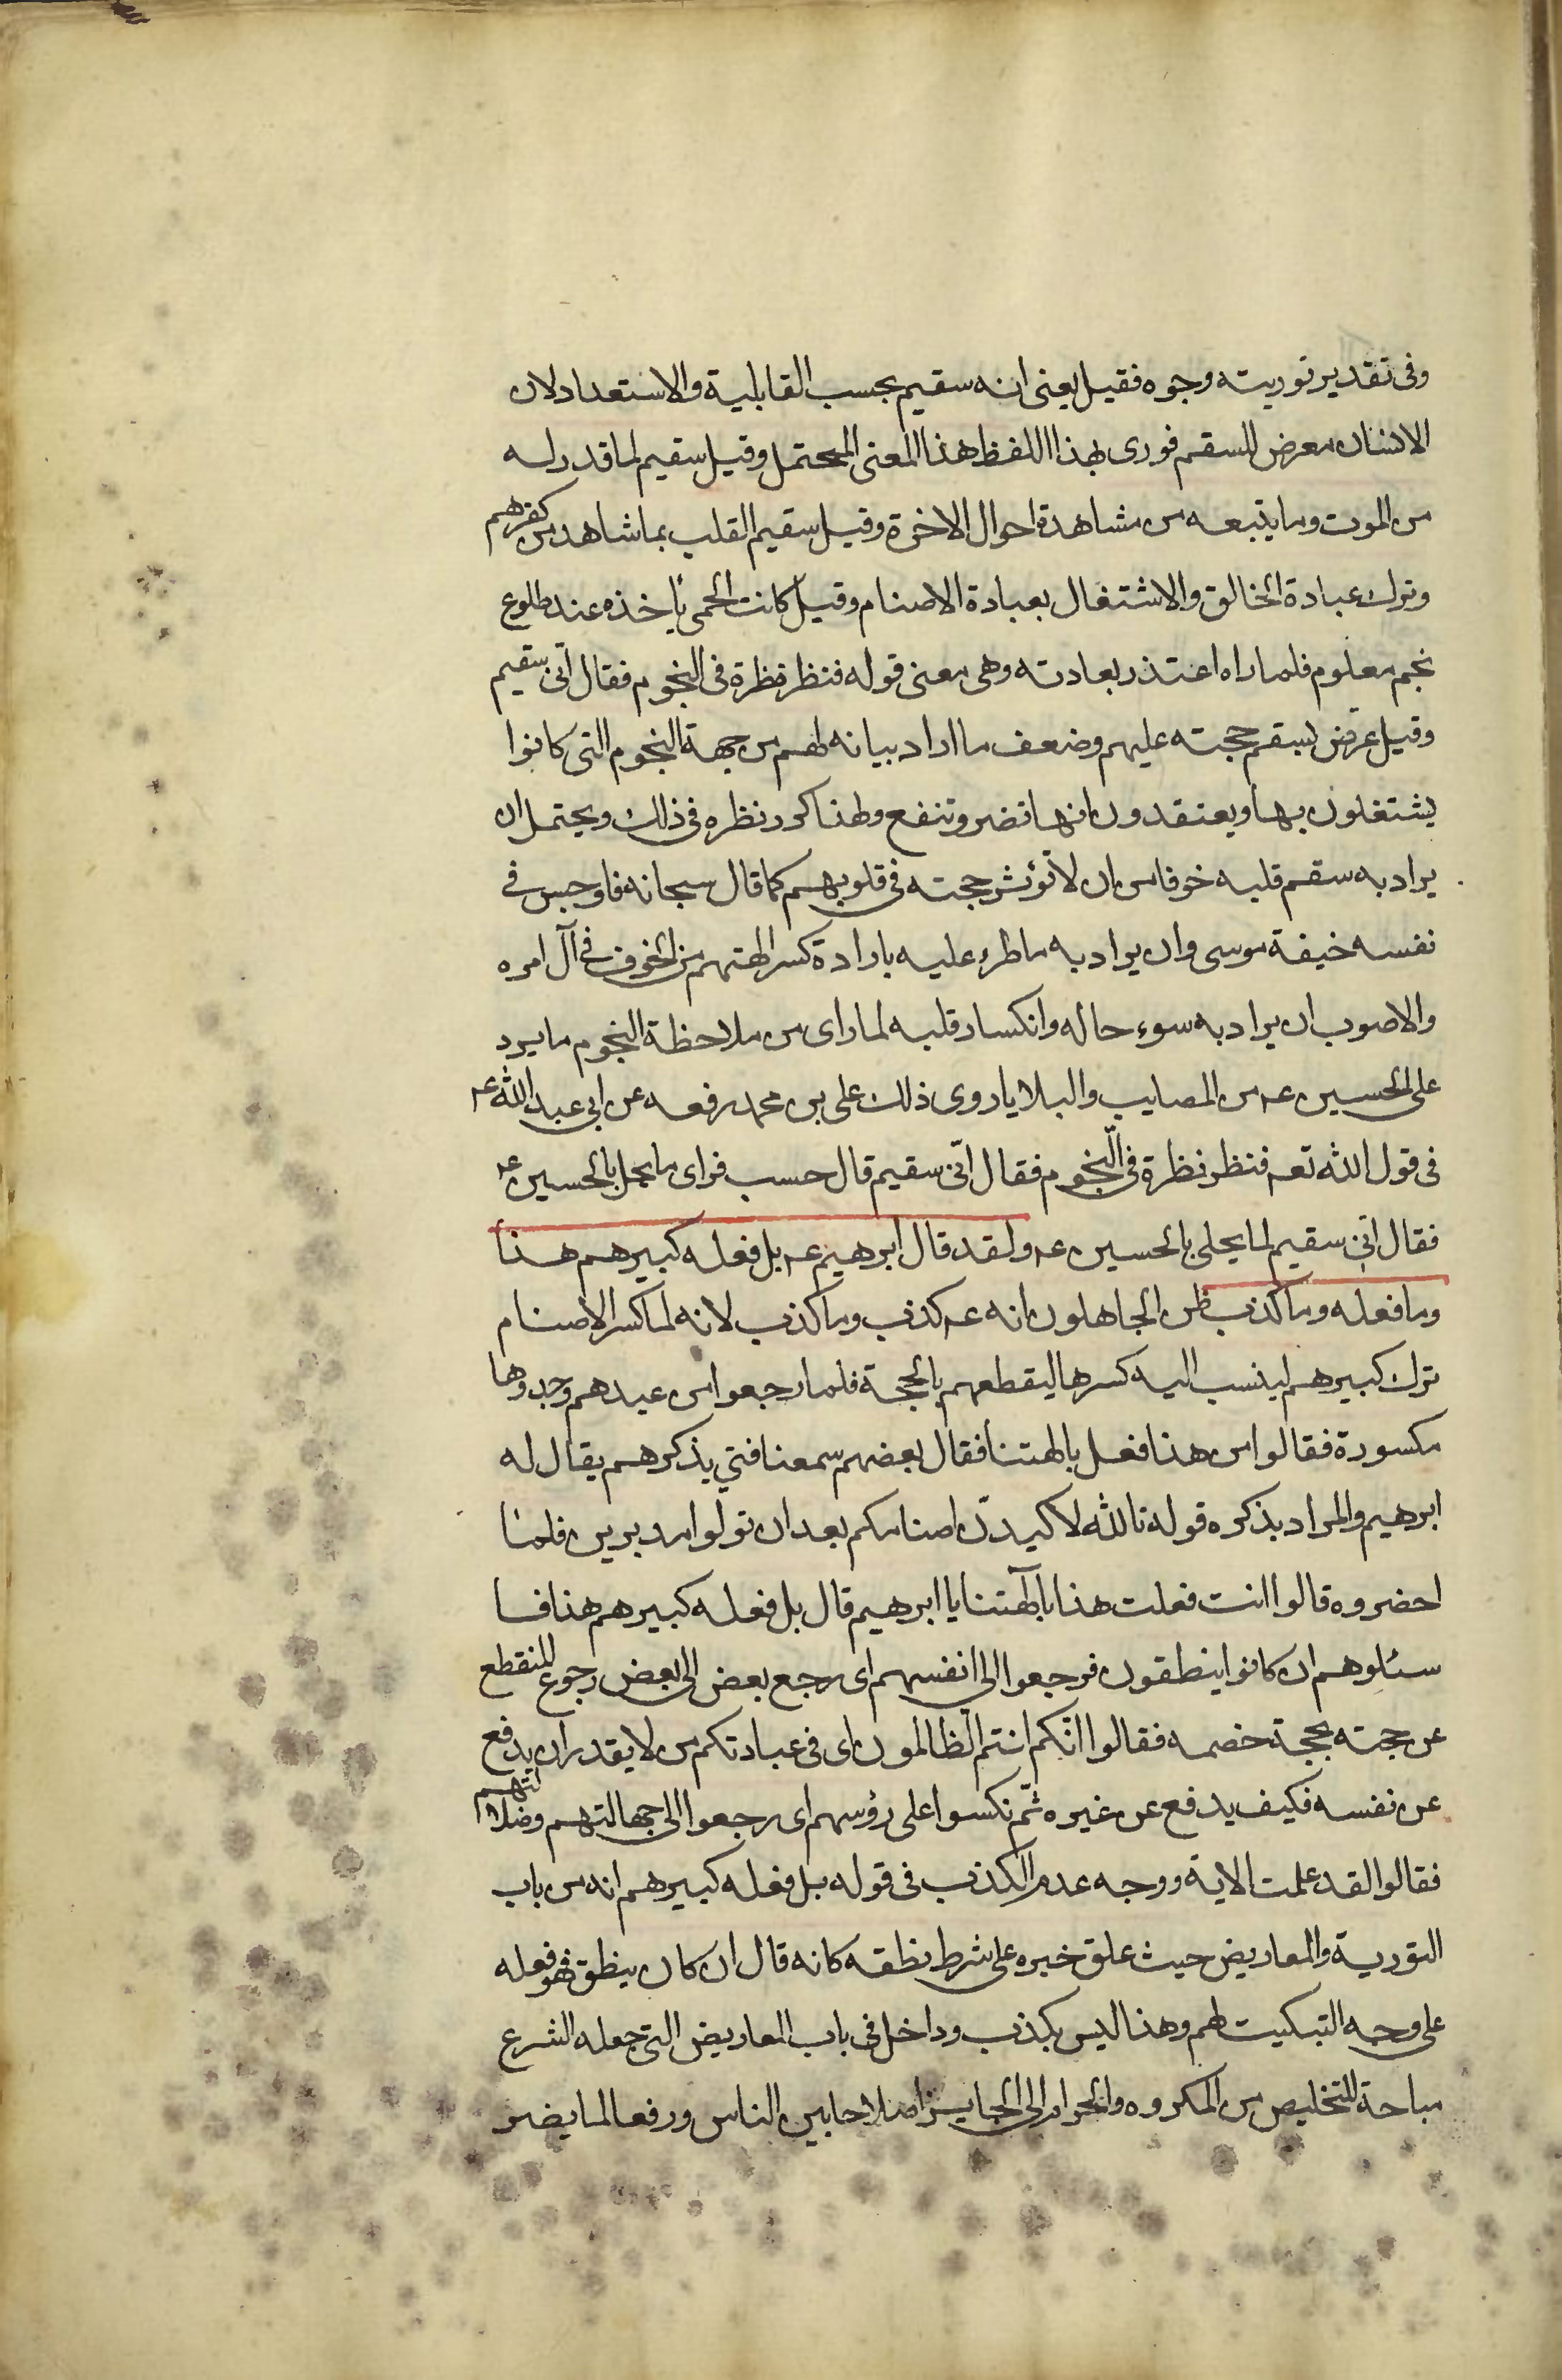 وفى تقدير توريته وجوه فقيل يعنى انه سقيم بحسب القابلية والاستعداد لان
الانسان معرض للسقم فورى بهذا اللفظ هذا المعنى المحتمل وقيل سقيم لما قدر له
من الموت وما يتبعه من مشاهدة احوال الاخرة وقيل سقيم القلب بما شاهد من كفرهم
وترك عبادة الخالق والاشتغال بعبادة الاصنام وقيل كانت الحمى يأخذه عند طلوع
نجم معلوم فلما راه اعتذر بعادته وهى معنى قوله فنظر نظرة فى النجوم فقال انّى سقيم
وقيل عرّض بسقم حجته عليهم وضعف ما اراد بيانه لهم من جهة النجوم التى كانوا
يشتغلون بها ويعتقدون انها تضر وتنفع ولهذا كرر نظره فى ذلك ويحتمل ان
يراد به سقم قلبه خوفا من ان لا تؤثر حجته فى قلوبهم كما قال سبحانه فاوجس فى
نفسه خيفة موسى وان يراد به ما طرء عليه بارادة كسر الهتهم من الخوف فى آل امره
والاصوب ان يراد به سوء حاله وانكسار قلبه لما راى من ملاحظة النجوم ما يرد
على الحسين عـ من المصايب والبلايا روى ذلك على بن محمد رفعه عن ابى عبد الله عـ
فى قول الله تعـ فنظر نظرة فى النّجوم فقال انّى سقيم قال حسب فراى ما يحل بالحسين عـ
فقال انّى سقيم لما يحل بالحسين عـ ولقد قال ابرهيم عـ بل فعله كبيرهم هذا
وما فعله وما كذب ظن الجاهلون انه عـ كذب وما كذب لانه لما كسر الاصنام
ترك كبيرهم لينسب اليه كسرها ليقطعهم بالحجة فلما رجعوا من عيدهم وجدوها
مكسورة فقالوا من هذا فعل بالهتنا فقال بعضهم سمعنا فتي يذكرهم يقال له
ابرهيم والمراد بذكره قوله تالله لاكيدنّ اصنامكم بعد ان تولوا مدبرين فلما
احضروه قالوا انت فعلت هذا بآلهتنا يا ابرهيم قال بل فعله كبيرهم هذا فسا
سئلوهم ان كانوا ينطقون فرجعوا الى انفسهم اى رجع بعض الى بعض رجوع المنقطع
عن حجته بحجة خصمه فقالوا انّكم انتم الظالمون اى فى عبادتكم من لا يقدر ان يدفع
عن نفسه فكيف يدفع عن غيره ثمّ نكسوا على رؤسهم اى رجعوا الى جهالتهم وضلالتهم
فقالوا لقد علمت الاية ووجه عدم الكذب فى قوله بل فعله كبيرهم انه من باب
التورية والمعاريض حيث علق خبره على شرط نطقه كانه قال ان كان ينطق فهو فعله
على وجه التبكيت لهم وهذا ليس بكذب وداخل فى باب المعاريض التى جعله الشرع
مباحة للتخليص من المكروه والحرام الى الجايز اصلاحا بين الناس ورفعا لما يضر